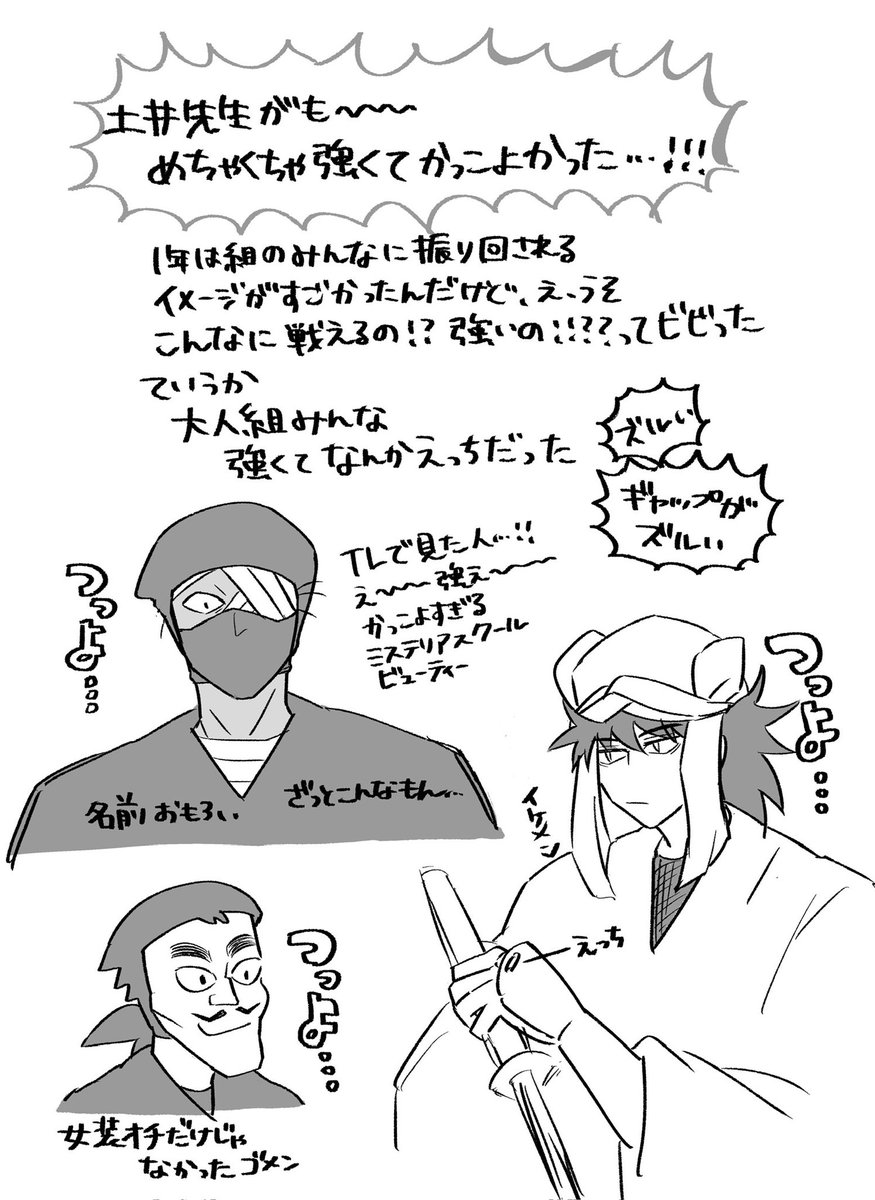 土井先生がも〜〜〜
めちゃくちゃ強くてかっこよかった…!!!
1年は組のみんなに振り回される
イメージがすごかったんだけど、え、うそ
こんなに戦えるの!? 強いの!!??ってビビった
ていうか
大人組みんな
強くてなんかえっちだった
ズルい
ギャップが
ズルい
TLで見た人…!!
え〜〜強ぇ〜〜〜
かっこよすぎる
ミステリアスクール
ビューティー
つっよ…
名前おもろい
ざっとこんなもん…
つっよ…
イケメン
えっち
つっよ…
女装オチだけじゃ
なかったゴメン